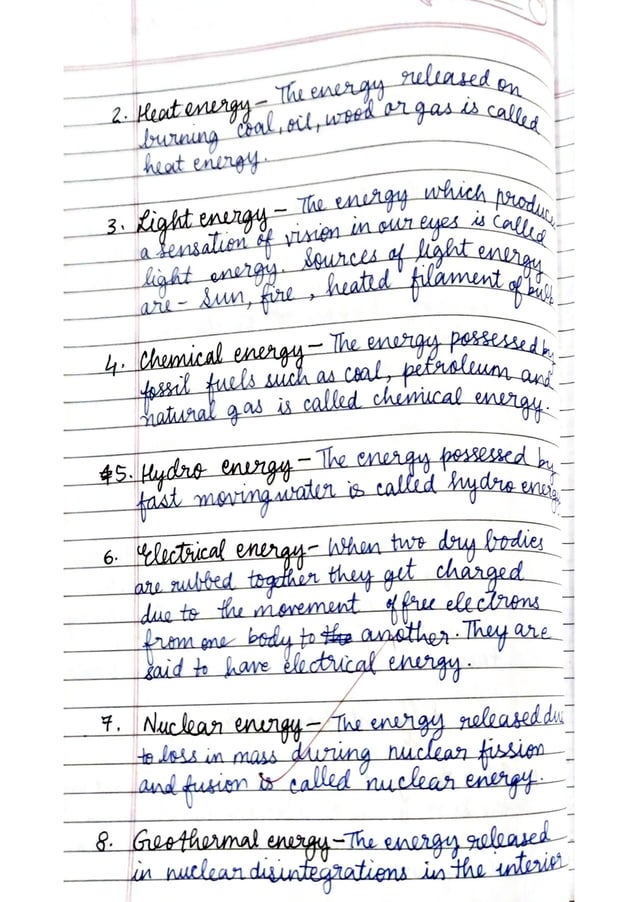 2. Heat energy – The energy released on
burning coal, oil, wood or gas is called
heat energy.
3. Light energy – The energy which produc
a sensation of vision in our eyes is called
light energy. Sources of light energy
are – Sun, fire, heated filament of bulb
4. Chemical energy – The energy possessed by
fossil fuels such as coal, petroleum and
natural gas is called chemical energy.
5. Hydro energy – The energy possessed by
fast moving water is called hydro energy
6. Electrical energy – When two dry bodies
are rubbed together they get charged
due to the movement of free electrons
from one body to the another. They are
said to have electrical energy.
7. Nuclear energy – The energy released due
to loss in mass during nuclear fission
and fusion is called nuclear energy.
8. Geothermal energy – The energy released
in nuclear disintegrations in the interior